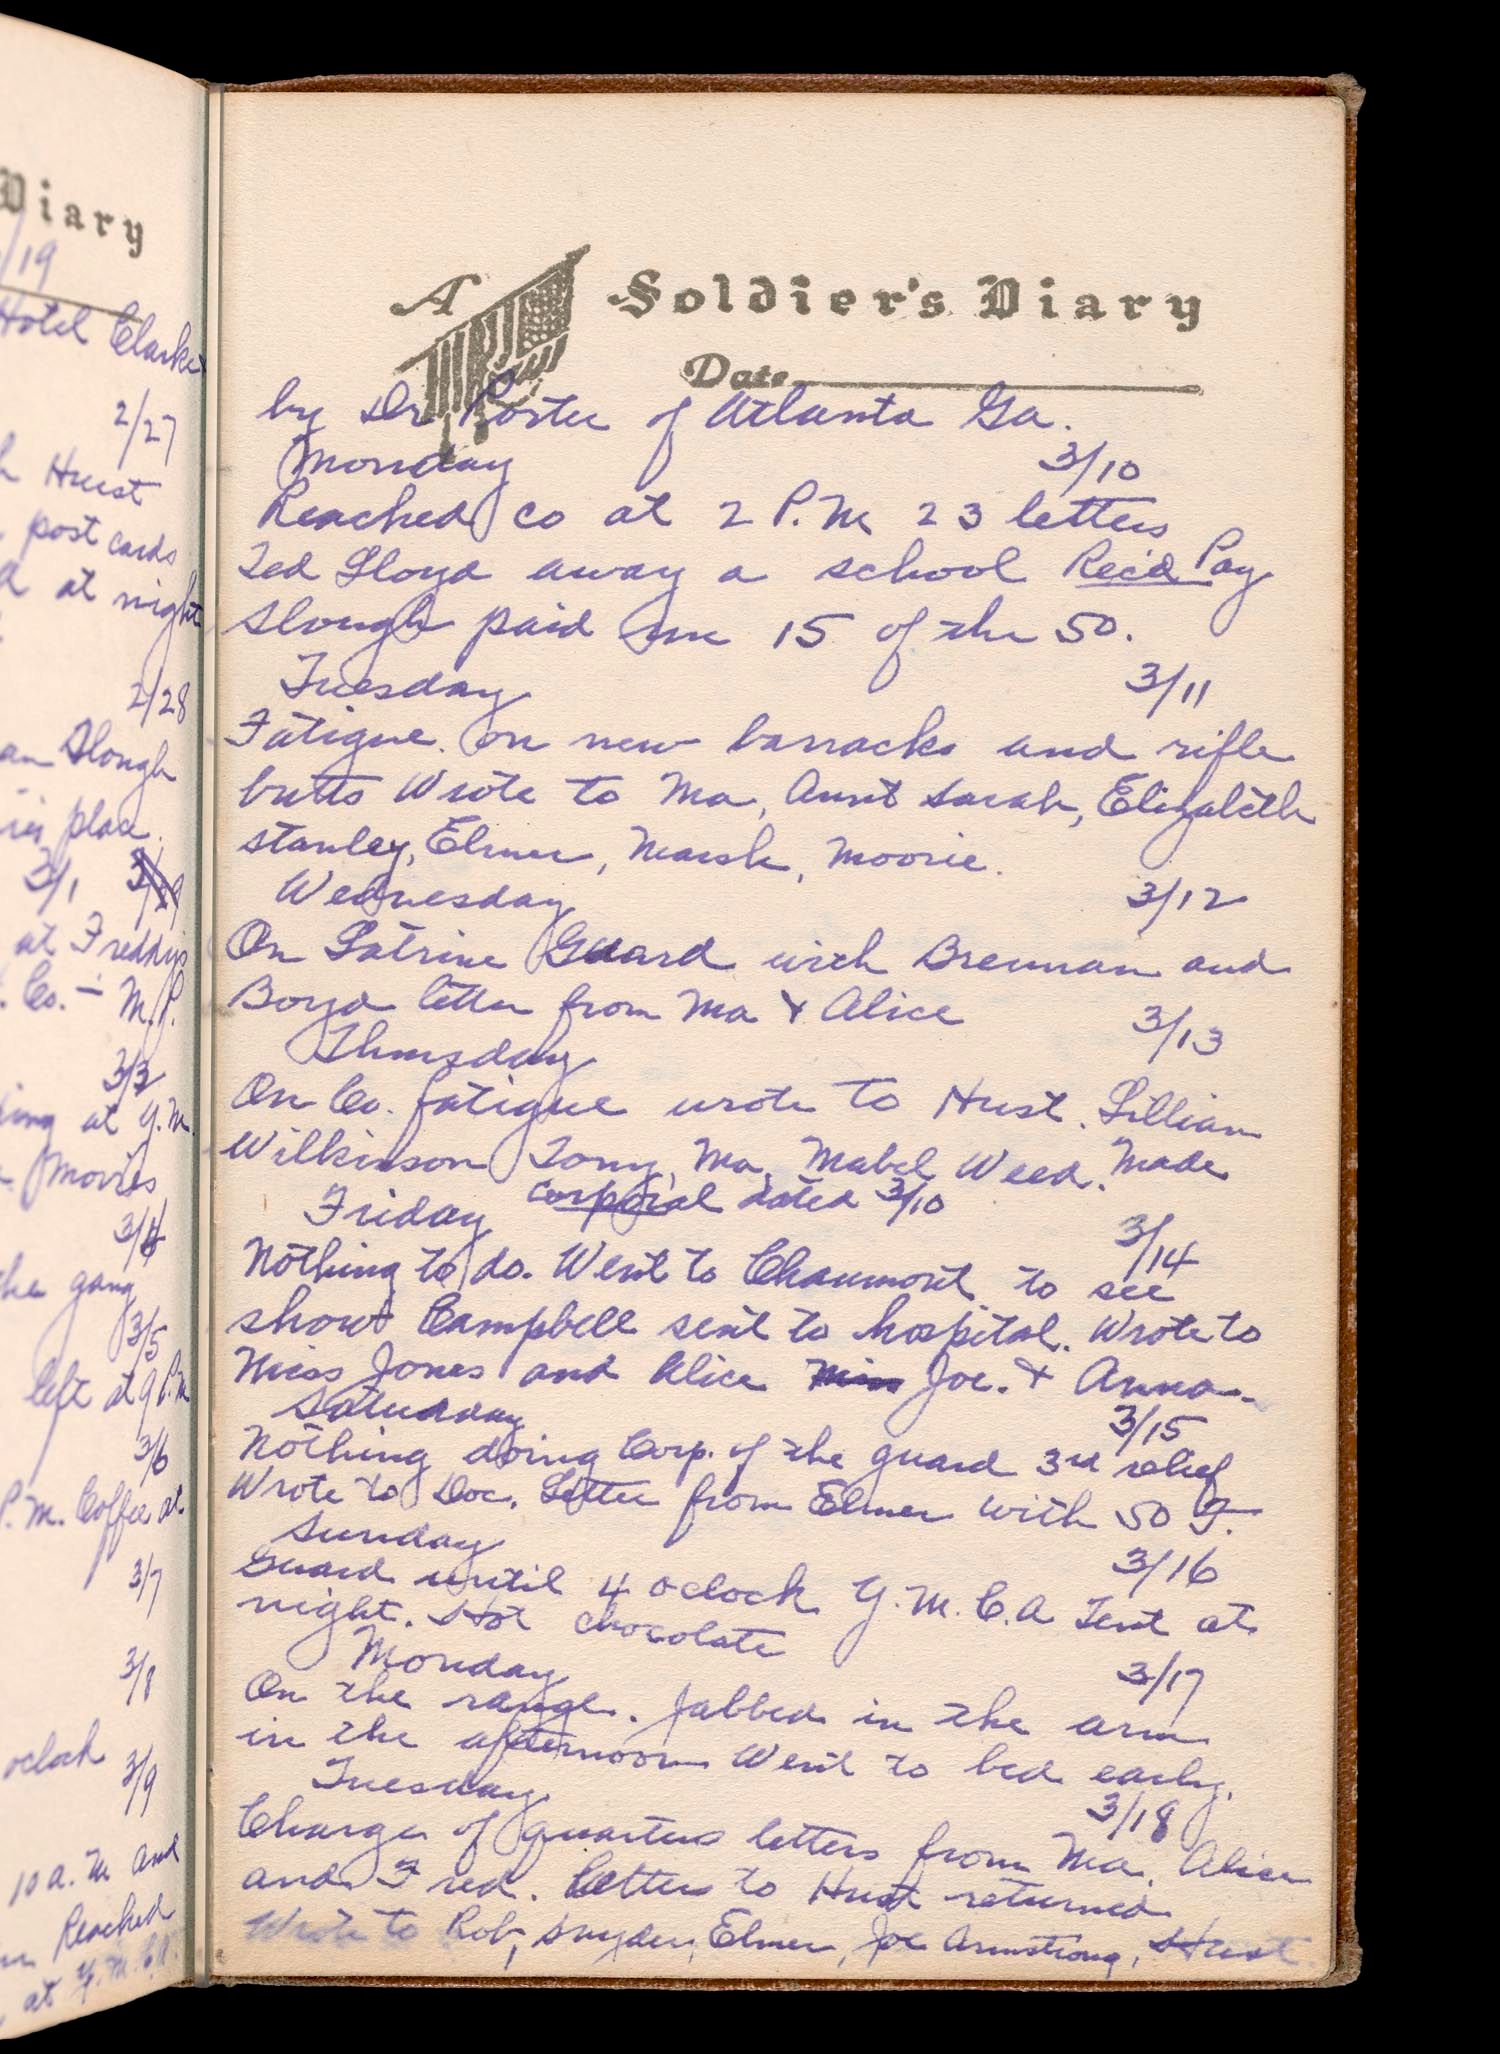 Diary
/19
Hotel Clarke
2/27
Hurst
post cards
at night
2/28
Slough
place.
3/1
at Freddys
Co. - M.P.
3/3
at Y.M.
Movies
3/4
the gang
3/5
left at 9 P.M
3/6
P.M. Coffee at
3/7
3/8
oclock
3/9
10 a.m and
Reached
at Y.M.C.A.
A Soldier's Diary
Date
by Dr Porter of Atlanta Ga.
Monday 3/10
Reached co at 2 P.M 23 letters
Ted Lloyd away a school Rec'd Pay
Slough paid me 15 of the 50.
Tuesday 3/11
Fatigue on new barracks and rifle
butts Wrote to Ma, Aunt Sarah, Elizabeth
Stanley, Elmer, Marsh, Moorie.
Wednesday 3/12
On Latrine Guard with Brennan and
Boyd letter from Ma & Alice
Thursday 3/13
On Co. fatigue wrote to Hurst. Lillian
Wilkinson Tony, Ma, Mabel Weed. Made
corporal dated 3/10
Friday 3/14
Nothing to do. Went to Chaumont to see
show Campbell sent to hospital. Wrote to
Miss Jones and Alice Miss Joe. & Anna.
Saturday 3/15
Nothing doing Corp. of the guard 3rd relief
Wrote to Doc. Letter from Elmer with 50 F.
Sunday 3/16
Guard until 4 oclock Y.M.C.A Tent at
night. Hot chocolate
Monday 3/17
On the range. Jabbed in the arm
in the afternoon Went to bed early.
Tuesday 3/18
Charge of quarters letters from Ma, Alice
and Fred. Letters to Hurst returned
Wrote to Rob, Snyder, Elmer, Joe Armstrong, Hurst